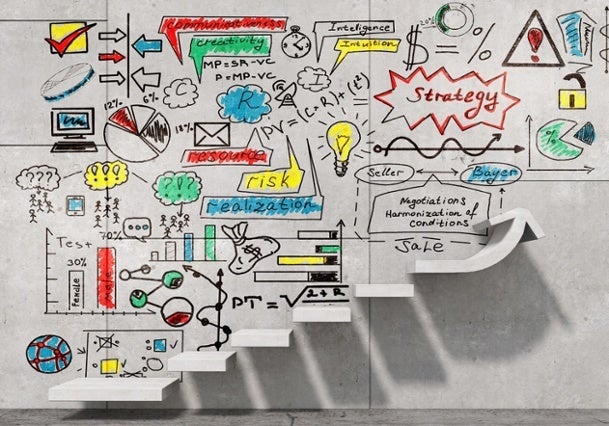 communicativeness
creativity
MP=SR-VC
P=MP-VC
Inteligence
Intuition
20%
$ = %
Strategy
C
R
I
12%
6%
18%
PV=(C+R)+(t²)
resource
risk
realization
Seller
Bayer
Negotiations
Harmonization of
conditions
Sale
????
!!!
!?!
Test
70%
30%
Female
Male
$
PT=√
2+R